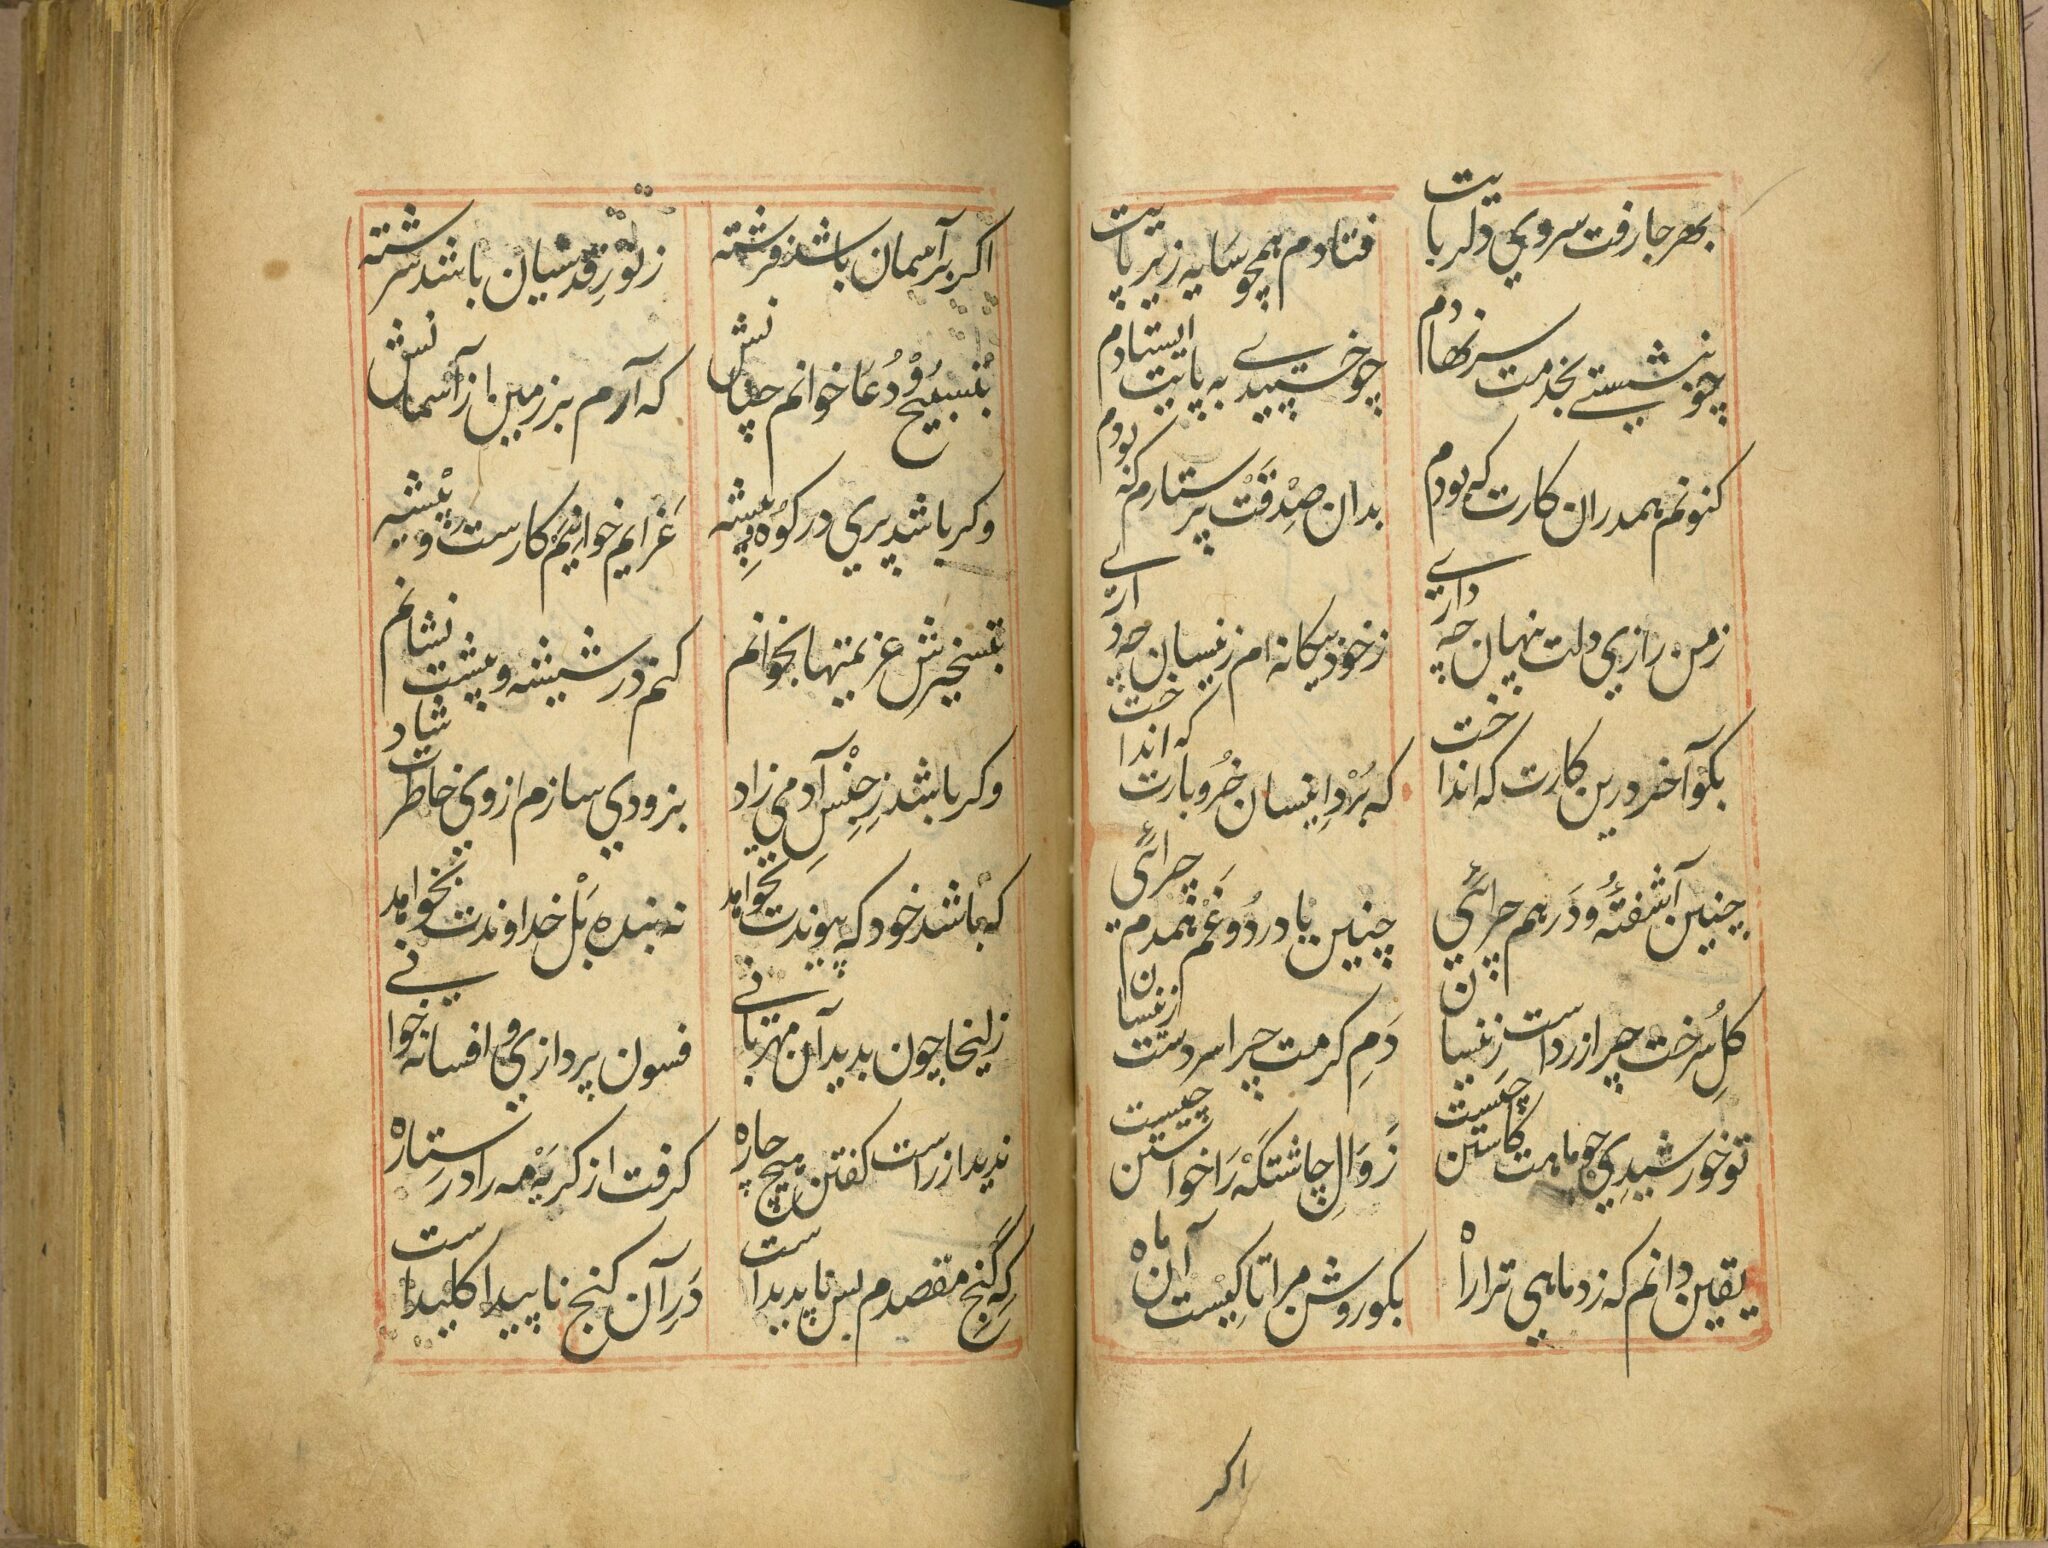 بهر جا رفت سروي دلربایت فتادم همچو سَایه زیر پایت
چو بنشستے بخدمت سر نهادم چو خسپیدے به پایت ایستادم
کنونم همدران کارت که بودم بدان صِدْقَتْ پرستارم که بودم
زمن رازي دلت پنهان چه دارے ز خود بیکانه ام زینسان چه دارے
بکو آخر درین کارت که انداخت که بُرْدِ اینسان خرُو بارت که انداخت
چنین آشفتهٔ و دَرهم چرائي چنین با دردُ و غم همدم چرائي
کلِ سُرخت چرا زرداست زینسان دَمِ کرمت چرا سردست ازینسان
تو خورشیدِي چو ماهت کاستن چیست زَوَالِ چاشتکَهْ رَا خواستن چیست
یقین دانم که زد ماهي ترا راهْ بکو روشن مرا تا کِیست آن ماه
اکر
اکر بر آسمان باشد فرشته ز نُورِ قدسیان باشد سرشته
بتسبیحُ و دُعا خوانم چنانش که آرم بر زمین از آسمانش
وکر باشد پري در کوُه و بیشه عَزایم خوانیَم کارست و پیْشه
بتسخیرش عزیمتها بخوانم کنم در شیشه و پیشت نشانم
وکر باشد زِ جِنْسِ آدمي زاد بزودي سازم از وي خاطرت شاد
که باشد خود که پیوندت نخواهد نه بنده بَلْ خداوندت نخواهد
زلیخا چون بدید آن مهربانے فسون پردازي و افسانه خوانے
ندید از راست کفتن هیچ چاره کرفت از کریه مه را در ستِاره
کِه کَنجِ مقصدم بس ناپدیداست دَرِ آن کنج ناپیدا کلیداست